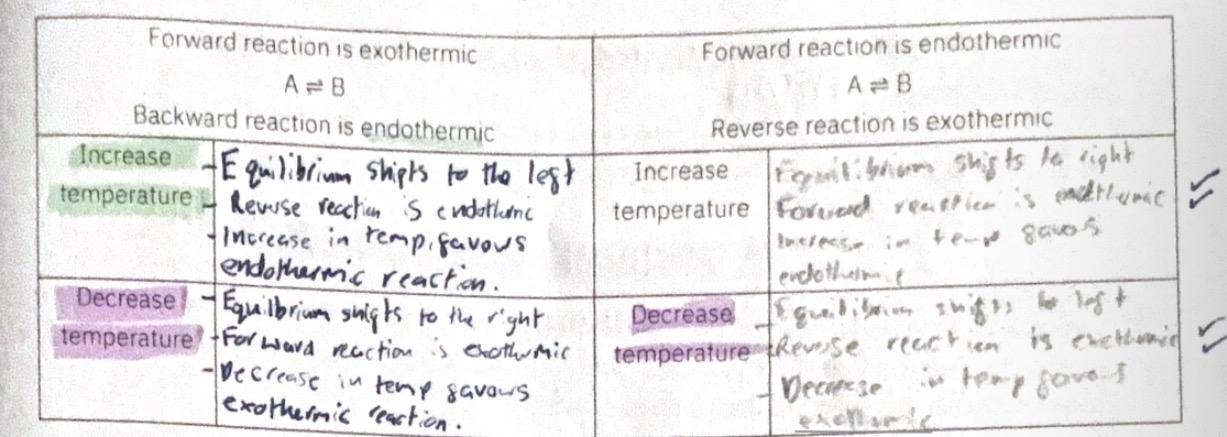 Forward reaction is exothermic
A ⇌ B
Backward reaction is endothermic
Forward reaction is endothermic
A ⇌ B
Reverse reaction is exothermic
Increase
temperature
- Equilibrium shifts to the left
- Reverse reaction is endothermic
- Increase in temp. favours
endothermic reaction.
Increase
temperature
Equilibrium shifts to right
Forward reaction is endothermic
Increase in temp favors
endothermic
Decrease
temperature
- Equilbrium shifts to the right
- Forward reaction is exothermic
- Decrease in temp favours
exothermic reaction.
Decrease
temperature
- Equilibrium shifts to left
- Reverse reaction is exothermic
- Decrease in temp favors
exothermic